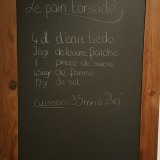 Le pain torsadé
4 dl d'eau tiède
20gr de levure fraîche
1 pincée de sucre
45gr de farine
12gr de sel
Cuisson: 35mn à 240°